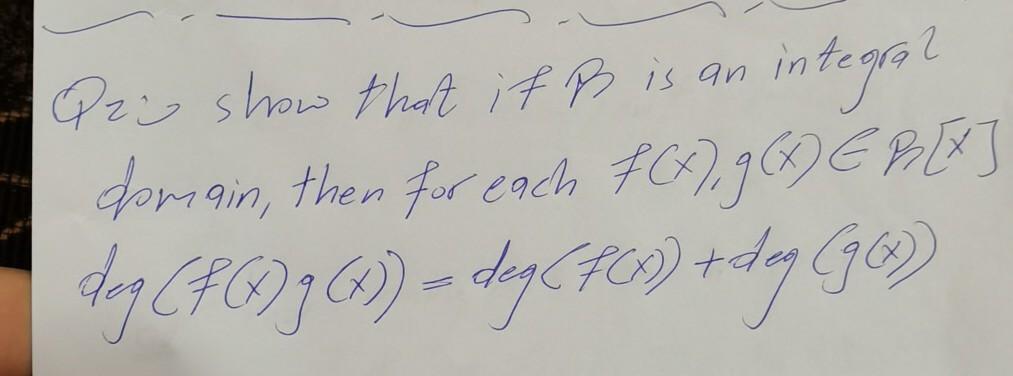 Q2:- show that if R is an integral
domain, then for each f(x), g(x) ∈ R[x]
deg(f(x)g(x)) = deg(f(x)) + deg(g(x))